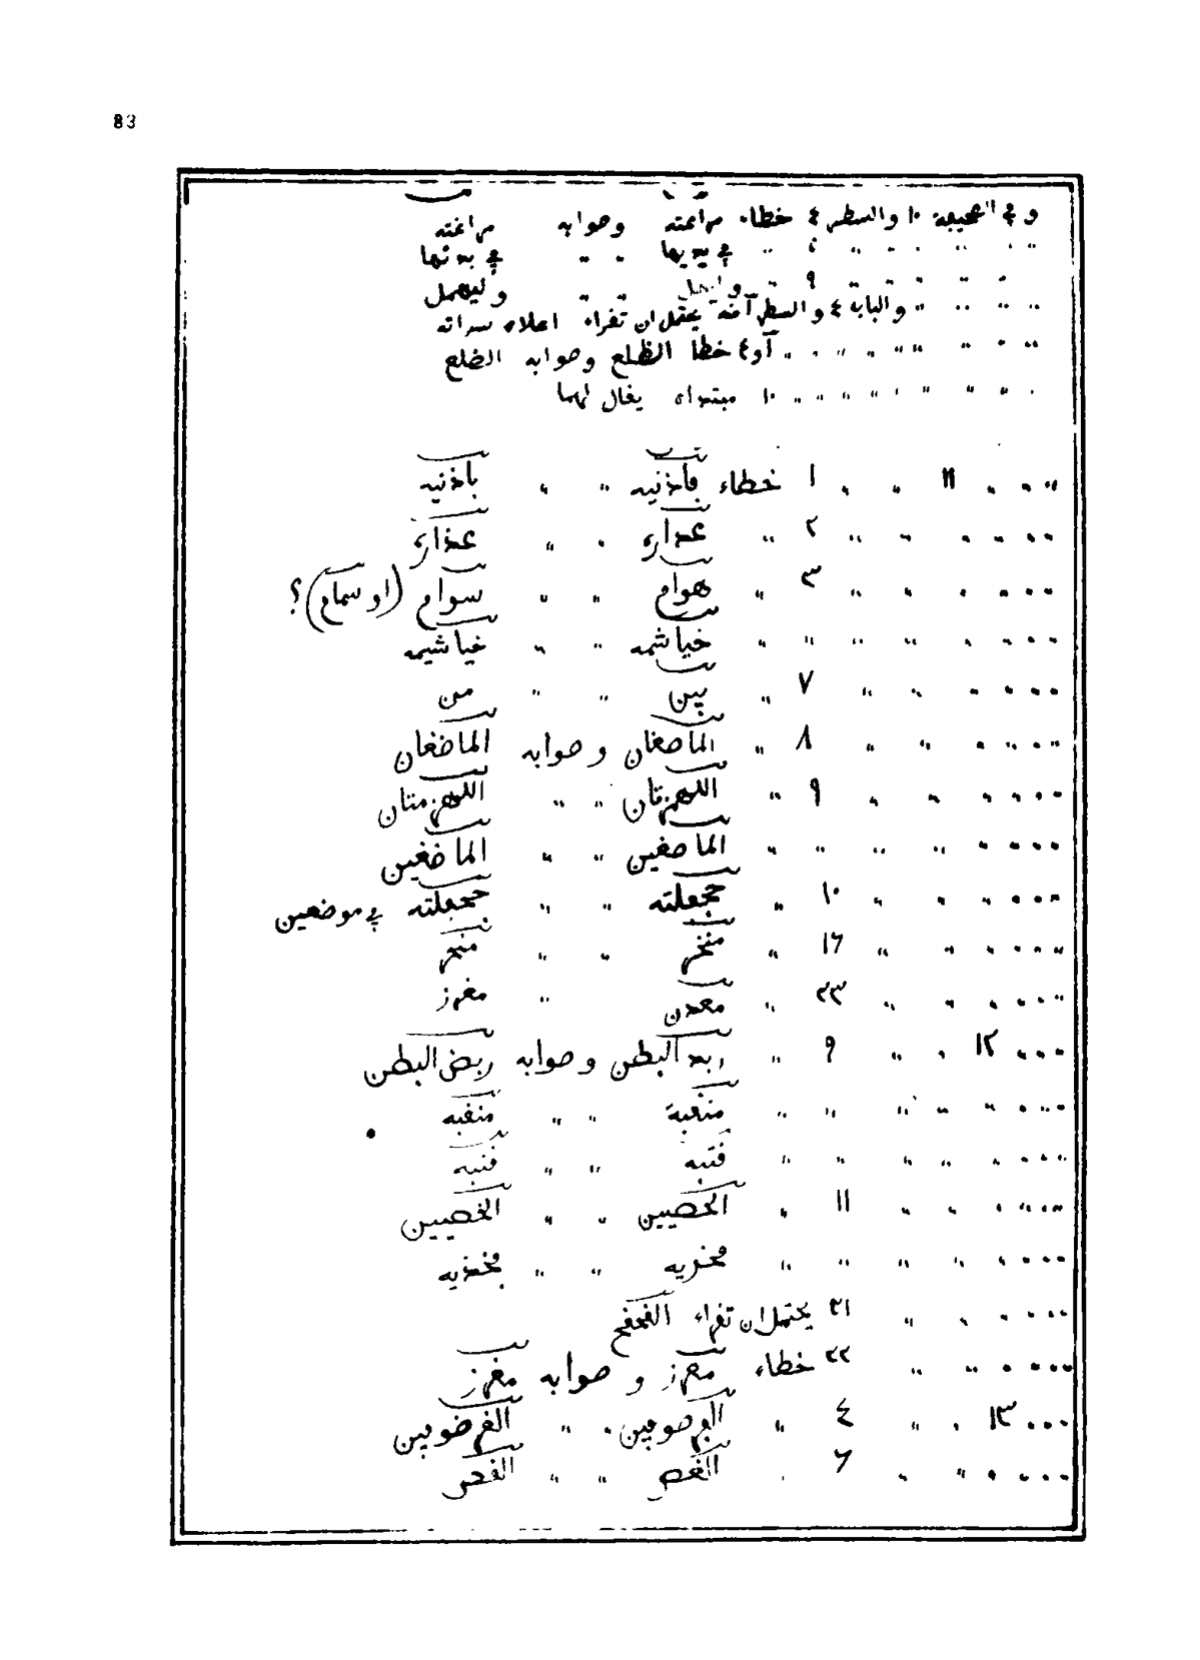 83
و في الصحيفة ١٠ والسطر ٤ خطاء مراعته وصوابه مراغته
" " " " " " " في يديها " " في بدئها
" " " " ٩ " " " وليعمل
" " " " والبابة ٤ والسطر آخه يحتمل ان تقراء اعلاه سراته
" " " " " " " " آو٤ خطا الظلع وصوابه الضلع
" " " " " " " " " " ١٠ مبتداه يقال لهما
" " " " ١١ " " " ١ خطاء فاذنيه " " باذنيه
" " " " " " " ٢ " عداره " " عذاره
" " " " " " " ٣ " هوام " " سوام (او سمام)؟
" " " " " " " " " خياشمه " " خياشيمه
" " " " " " " ٧ " بين " " من
" " " " " " " ٨ " الماصغان وصوابه الماضغان
" " " " " " " ٩ " اللهزتان " " اللهزمتان
" " " " " " " " " الماصغين " " الماضغين
" " " " " " " ١٠ " جحعلته " " جحفلته في موضعين
" " " " " " ١٦ " منخر " " منحر
" " " " " " ٢٣ " معدن " مغرز
" " " ١٢ " " ٩ " ربد البطن وصوابه ربض البطن
" " " " " " " " " منعبة " " منقبه
" " " " " " " " " قتبه " " قنبه
" " " " " " ١١ " الحصيين " " الخصيين
" " " " " " " " " فخديه " " فخذيه
" " " " " " ٢١ يحتمل ان تقراء القحقح
" " " " " " ٢٢ خطاء معرز وصوابه مغرز
" " " ١٣ " " ٤ " العرصوبين " " الغرضوبين
" " " " " " " ٦ " الغص " " الفص